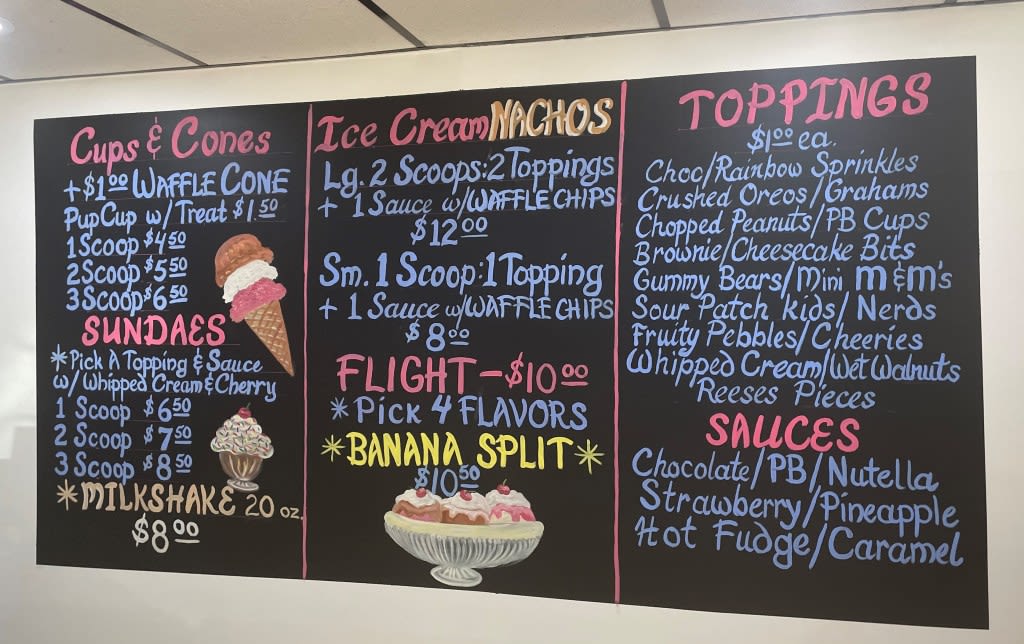 Cups & Cones
+ $1.00 WAFFLE CONE
PupCup w/Treat $1.50
1 Scoop $4.50
2 Scoop $5.50
3 Scoop $6.50
SUNDAES
*Pick A Topping & Sauce
w/ Whipped Cream & Cherry
1 Scoop $6.50
2 Scoop $7.50
3 Scoop $8.50
*MILKSHAKE 20 oz.
$8.00
Ice Cream NACHOS
Lg. 2 Scoops: 2 Toppings
+ 1 Sauce w/WAFFLE CHIPS
$12.00
Sm. 1 Scoop: 1 Topping
+ 1 Sauce w/WAFFLE CHIPS
$8.00
FLIGHT - $10.00
*Pick 4 FLAVORS
*BANANA SPLIT*
$10.50
TOPPINGS
$1.00 ea.
Choc/Rainbow Sprinkles
Crushed Oreos/Grahams
Chopped Peanuts/PB Cups
Brownie/Cheesecake Bits
Gummy Bears/Mini m&m's
Sour Patch kids/Nerds
Fruity Pebbles/Cheeries
Whipped Cream/Wet Walnuts
Reeses Pieces
SAUCES
Chocolate/PB/Nutella
Strawberry/Pineapple
Hot Fudge/Caramel